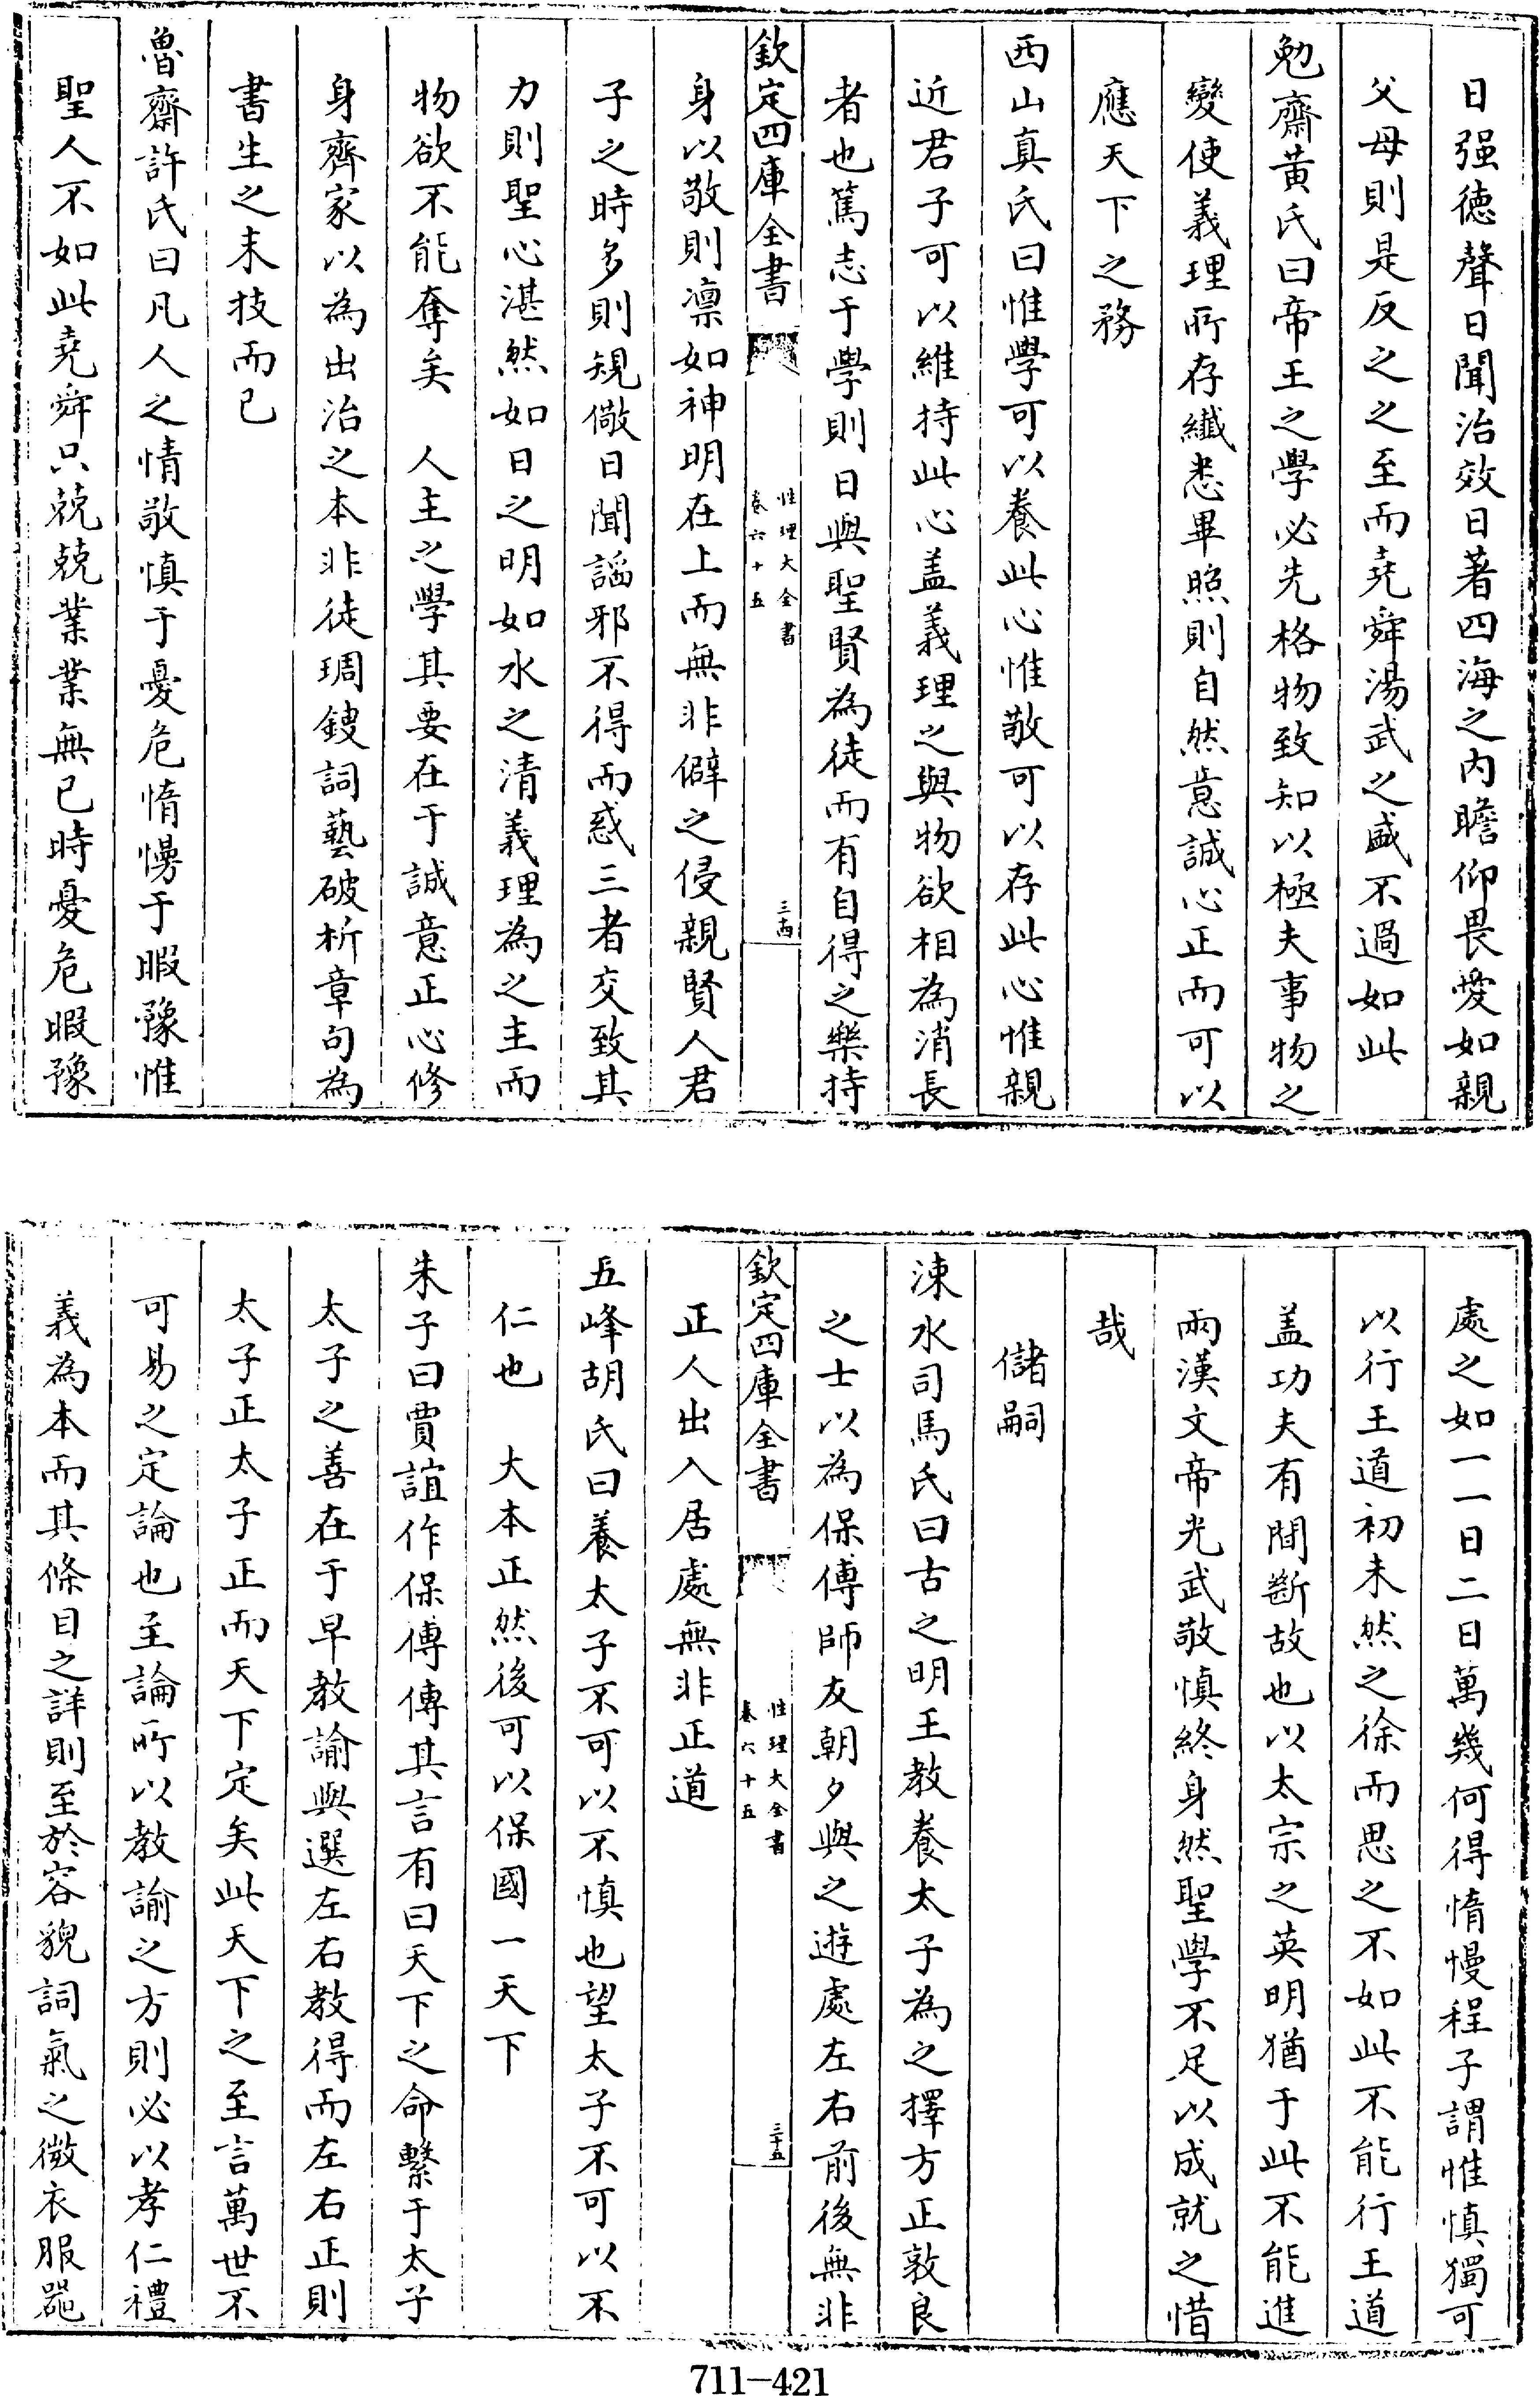 日强徳聲日聞治效日著四海之内瞻仰畏愛如親
父母則是反之之至而堯舜湯武之盛不過如此
勉齋黄氏曰帝王之學必先格物致知以極夫事物之
變使義理所存纎悉畢照則自然意誠心正而可以
應天下之務
西山真氏曰惟學可以養此心惟敬可以存此心惟親
近君子可以維持此心盖義理之與物欲相為消長
者也篤志于學則日與聖賢為徒而有自得之樂持
欽定四庫全書
性理大全書
卷六十五
三十四
身以敬則凛如神明在上而無非僻之侵親賢人君
子之時多則規儆日聞謟邪不得而惑三者交致其
力則聖心湛然如日之明如水之清義理為之主而
物欲不能奪矣　人主之學其要在于誠意正心修
身齊家以為出治之本非徒琱鎪詞藝破析章句為
書生之末技而已
魯齋許氏曰凡人之情敬慎于憂危惰慢于暇豫惟
聖人不如此堯舜只兢兢業業無已時憂危暇豫
處之如一一日二日萬幾何得惰慢程子謂惟慎獨可
以行王道初未然之徐而思之不如此不能行王道
盖功夫有間斷故也以太宗之英明猶于此不能進
兩漢文帝光武敬慎終身然聖學不足以成就之惜
哉
儲嗣
涑水司馬氏曰古之明王教養太子為之擇方正敦良
之士以為保傅師友朝夕與之遊處左右前後無非
欽定四庫全書
性理大全書
卷六十五
三十五
正人出入居處無非正道
五峰胡氏曰養太子不可以不慎也望太子不可以不
仁也　大本正然後可以保國一天下
朱子曰賈誼作保傅傳其言有曰天下之命繫于太子
太子之善在于早教諭與選左右教得而左右正則
太子正太子正而天下定矣此天下之至言萬世不
可易之定論也至論所以教諭之方則必以孝仁禮
義為本而其條目之詳則至於容貌詞氣之微衣服器
711-421